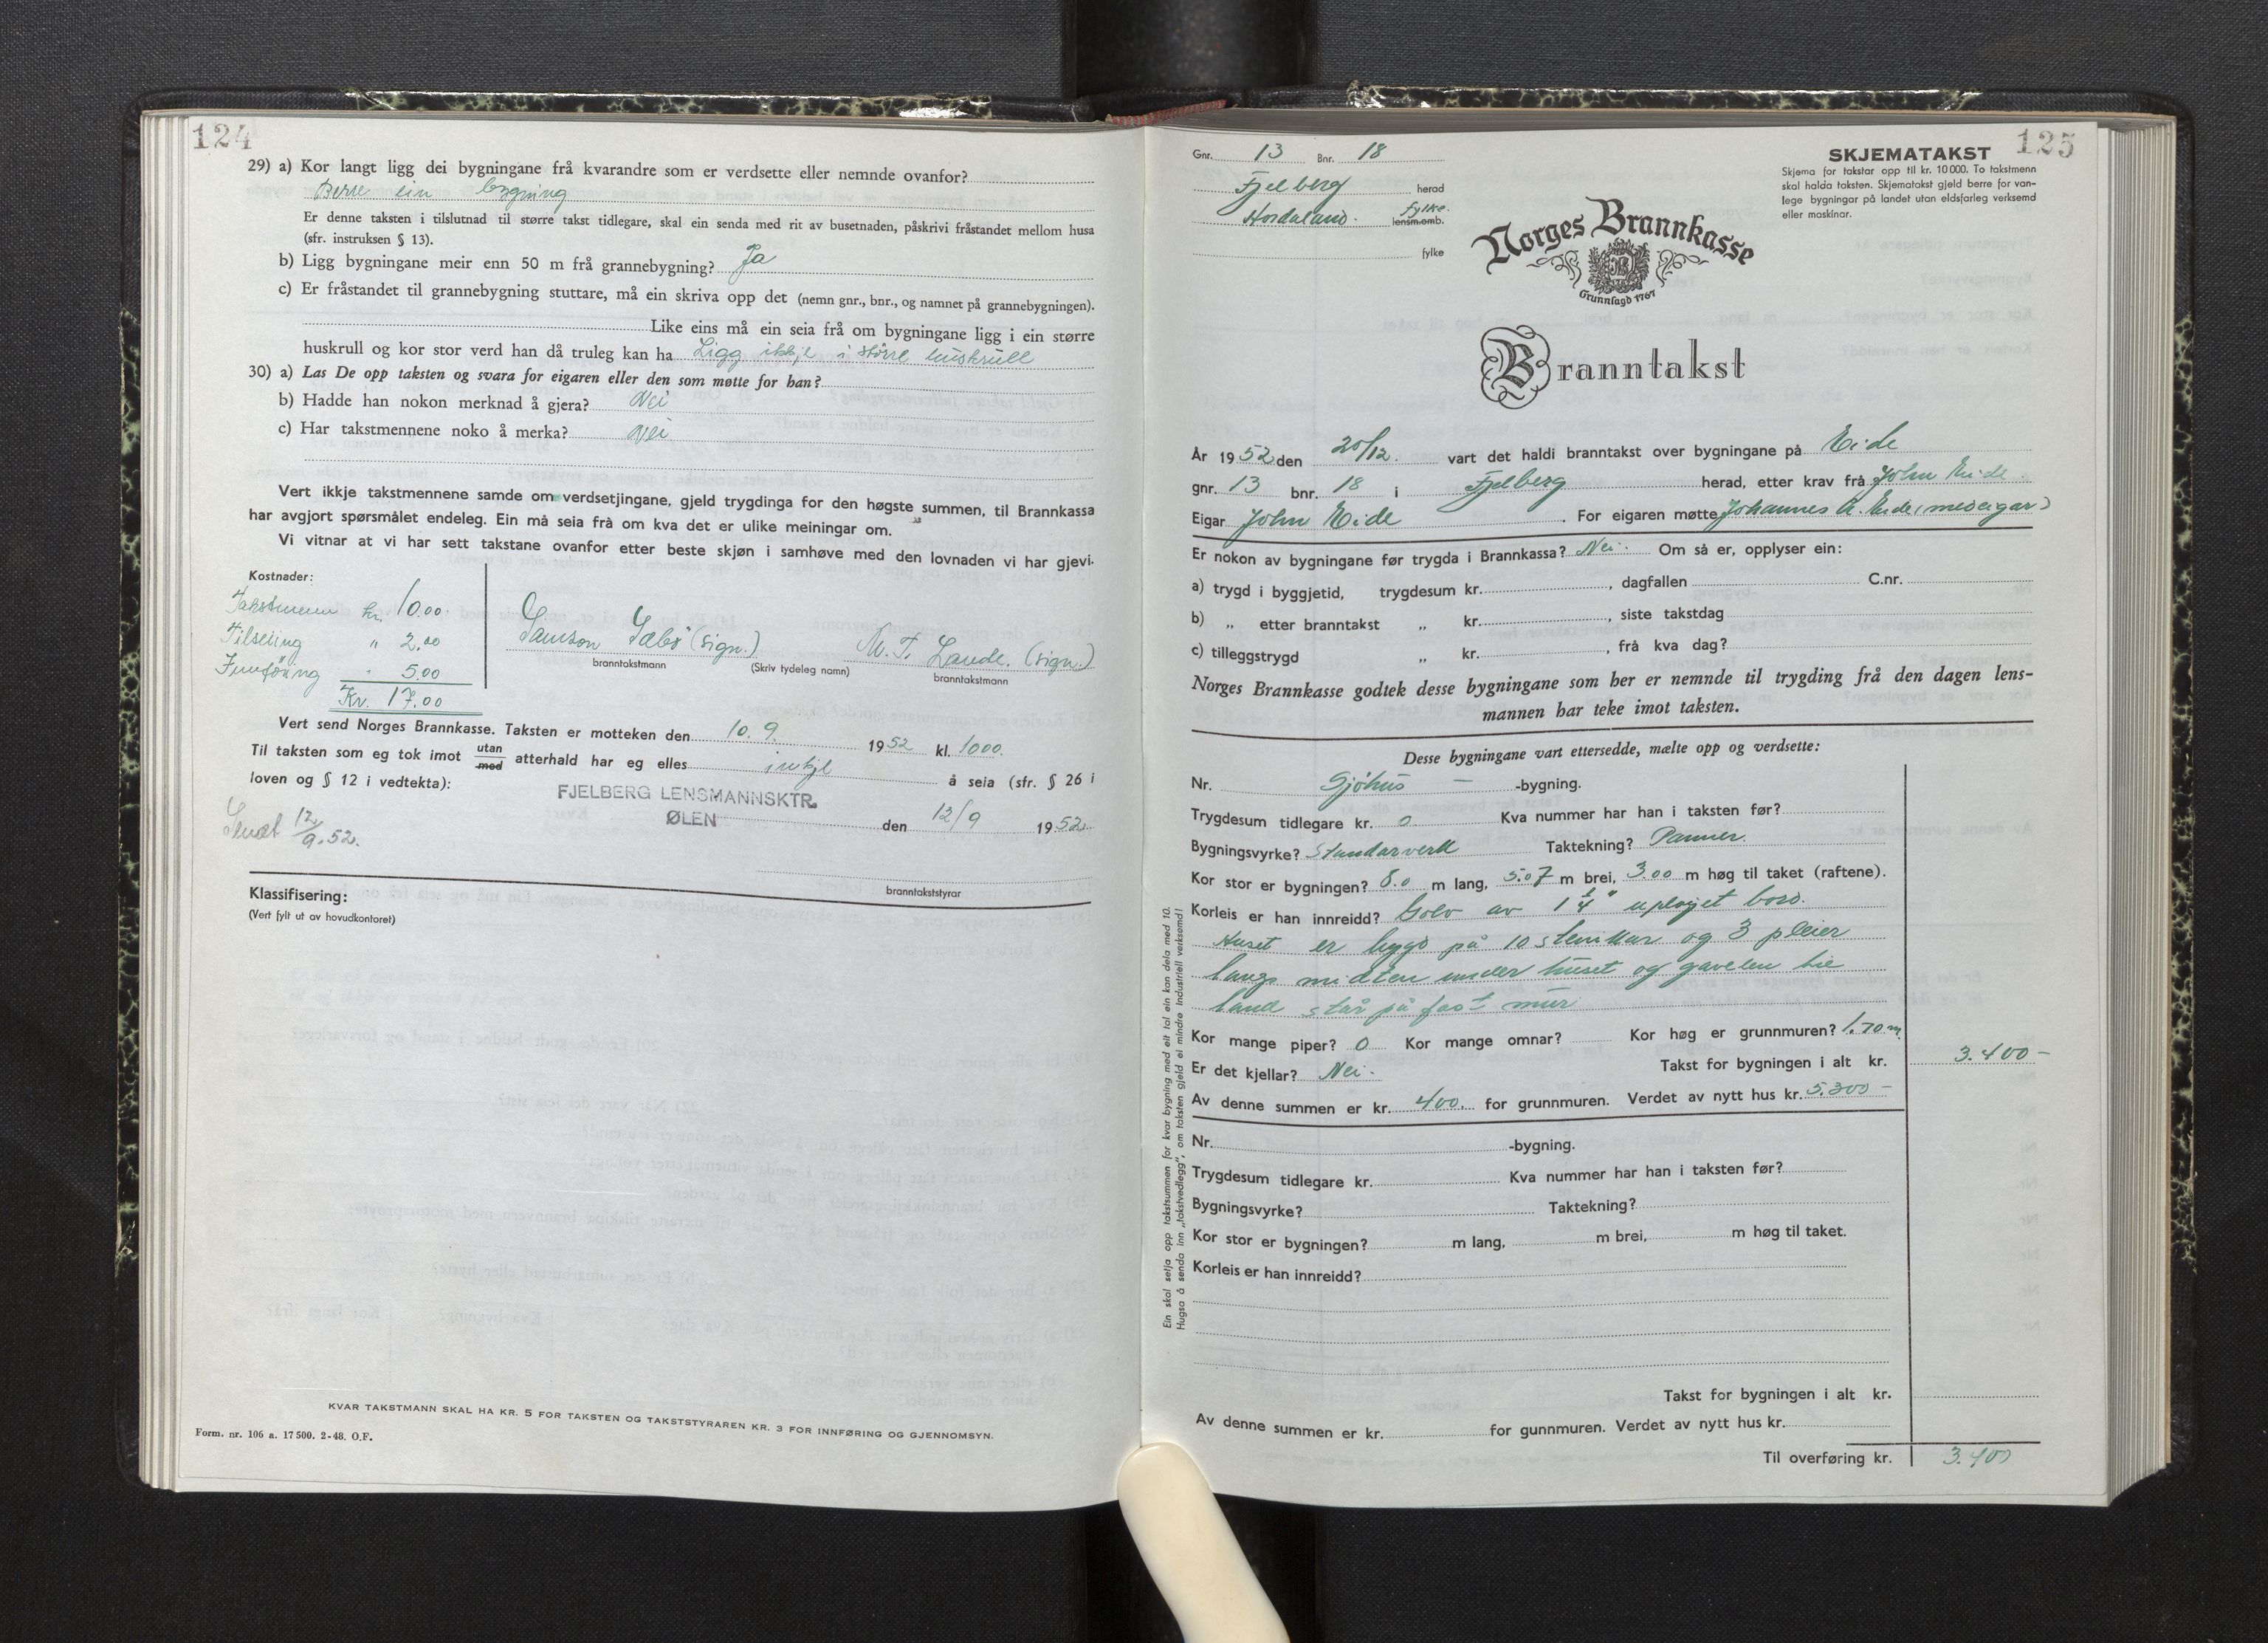 124
29) a) Kor langt ligg dei bygningane frå kvarandre som er verdsette eller nemnde ovanfor?
Berre ein bygning
Er denne taksten i tilslutnad til større takst tidlegare, skal ein senda med rit av busetnaden, påskrivi fråstandet mellom husa
(sfr. instruksen § 13).
b) Ligg bygningane meir enn 50 m frå grannebygning? Ja
c) Er fråstandet til grannebygning stuttare, må ein skriva opp det (nemn gnr., bnr., og namnet på grannebygningen).
Like eins må ein seia frå om bygningane ligg i ein større
huskrull og kor stor verd han då truleg kan ha Ligg ikkje i större huskrull
30) a) Las De opp taksten og svara for eigaren eller den som møtte for han?
b) Hadde han nokon merknad å gjera? Nei
c) Har takstmennene noko å merka? Nei
Vert ikkje takstmennene samde om verdsetjingane, gjeld trygdinga for den høgste summen, til Brannkassa
har avgjort spørsmålet endeleg. Ein må seia frå om kva det er ulike meiningar om.
Vi vitnar at vi har sett takstane ovanfor etter beste skjøn i samhøve med den lovnaden vi har gjevi.
Kostnader:
Takstmenn kr. 10.00
Tilseiing " 2.00
Innföring " 5.00
Kr. 17.00
Samson Sæbö (sign.) M. T. Lande. (sign.)
branntakstmann (Skriv tydeleg namn) branntakstmann
Vert send Norges Brannkasse. Taksten er motteken den 10. 9. 1952 kl. 1000.
Til taksten som eg tok imot utan med atterhald har eg elles inkje å seia (sfr. § 26 i
loven og § 12 i vedtekta):
FJELBERG LENSMANNSKTR.
ØLEN
den 12/9 1952
Sendt 12/9.52.
branntakststyrar
Klassifisering:
(Vert fylt ut av hovudkontoret)
KVAR TAKSTMANN SKAL HA KR. 5 FOR TAKSTEN OG TAKSTSTYRAREN KR. 3 FOR INNFØRING OG GJENNOMSYN.
Form. nr. 106 a. 17 500. 2-48. O.F.
125
Gnr. 13 Bnr. 18
Fjelberg herad
Hordaland. fylke. lensm.omb.
fylke
SKJEMATAKST
Skjema for takstar opp til kr. 10 000. To takstmenn
skal halda taksten. Skjematakst gjeld berre for van-
lege bygningar på landet utan eldsfarleg verksemd
eller maskinar.
Norges Brannkasse
Grunnlagd 1767
Branntakst
År 1952 den 20/12. vart det haldi branntakst over bygningane på Eide
gnr. 13 bnr. 18 i Fjelberg herad, etter krav frå John Eide.
Eigar John Eide. For eigaren møtte Johannes A. Eide (medeigar)
Er nokon av bygningane før trygda i Brannkassa? Nei. Om så er, opplyser ein:
a) trygd i byggjetid, trygdesum kr. , dagfallen C.nr.
b) „ etter branntakst „ kr. , siste takstdag
c) tilleggstrygd „ kr. , frå kva dag?
Norges Brannkasse godtek desse bygningane som her er nemnde til trygding frå den dagen lens-
mannen har teke imot taksten.
Desse bygningane vart ettersedde, mælte opp og verdsette:
Nr. Sjöhus -bygning.
Trygdesum tidlegare kr. 0. Kva nummer har han i taksten før?
Bygningsvyrke? Standarverk Taktekning? Panner.
Kor stor er bygningen? 8.0 m lang, 5.07 m brei, 3.00 m høg til taket (raftene).
Korleis er han innreidd? Golv av 1 1/4" uplöyet bord.
Huset er bygd på 10 steinkar og 3 pleier
langs midten under huset og gavelen tie
land står på fast mur
Kor mange piper? 0 Kor mange omnar? Kor høg er grunnmuren? 1.70 m
Er det kjellar? Nei. Takst for bygningen i alt kr. 3.400 –
Av denne summen er kr. 400. for grunnmuren. Verdet av nytt hus kr. 5.300 –
Nr. -bygning.
Trygdesum tidlegare kr. Kva nummer har han i taksten før?
Bygningsvyrke? Taktekning?
Kor stor er bygningen? m lang, m brei, m høg til taket.
Korleis er han innreidd?
Takst for bygningen i alt kr.
Av denne summen er kr. for gunnmuren. Verdet av nytt hus kr.
Til overføring kr. 3.400
Ein skal setja opp takstsummen for kvar bygning med eit tal ein kan dela med 10.
Hugsa å senda inn „takstvedlegg", om taksten gjeld ei mindre industriell verksemd!